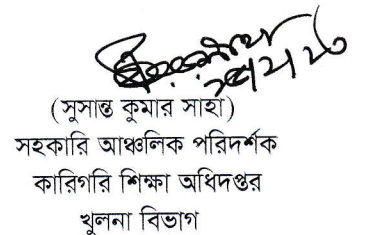 (সুসান্ত কুমার সাহা)
সহকারি আঞ্চলিক পরিদর্শক
কারিগরি শিক্ষা অধিদপ্তর
খুলনা বিভাগ